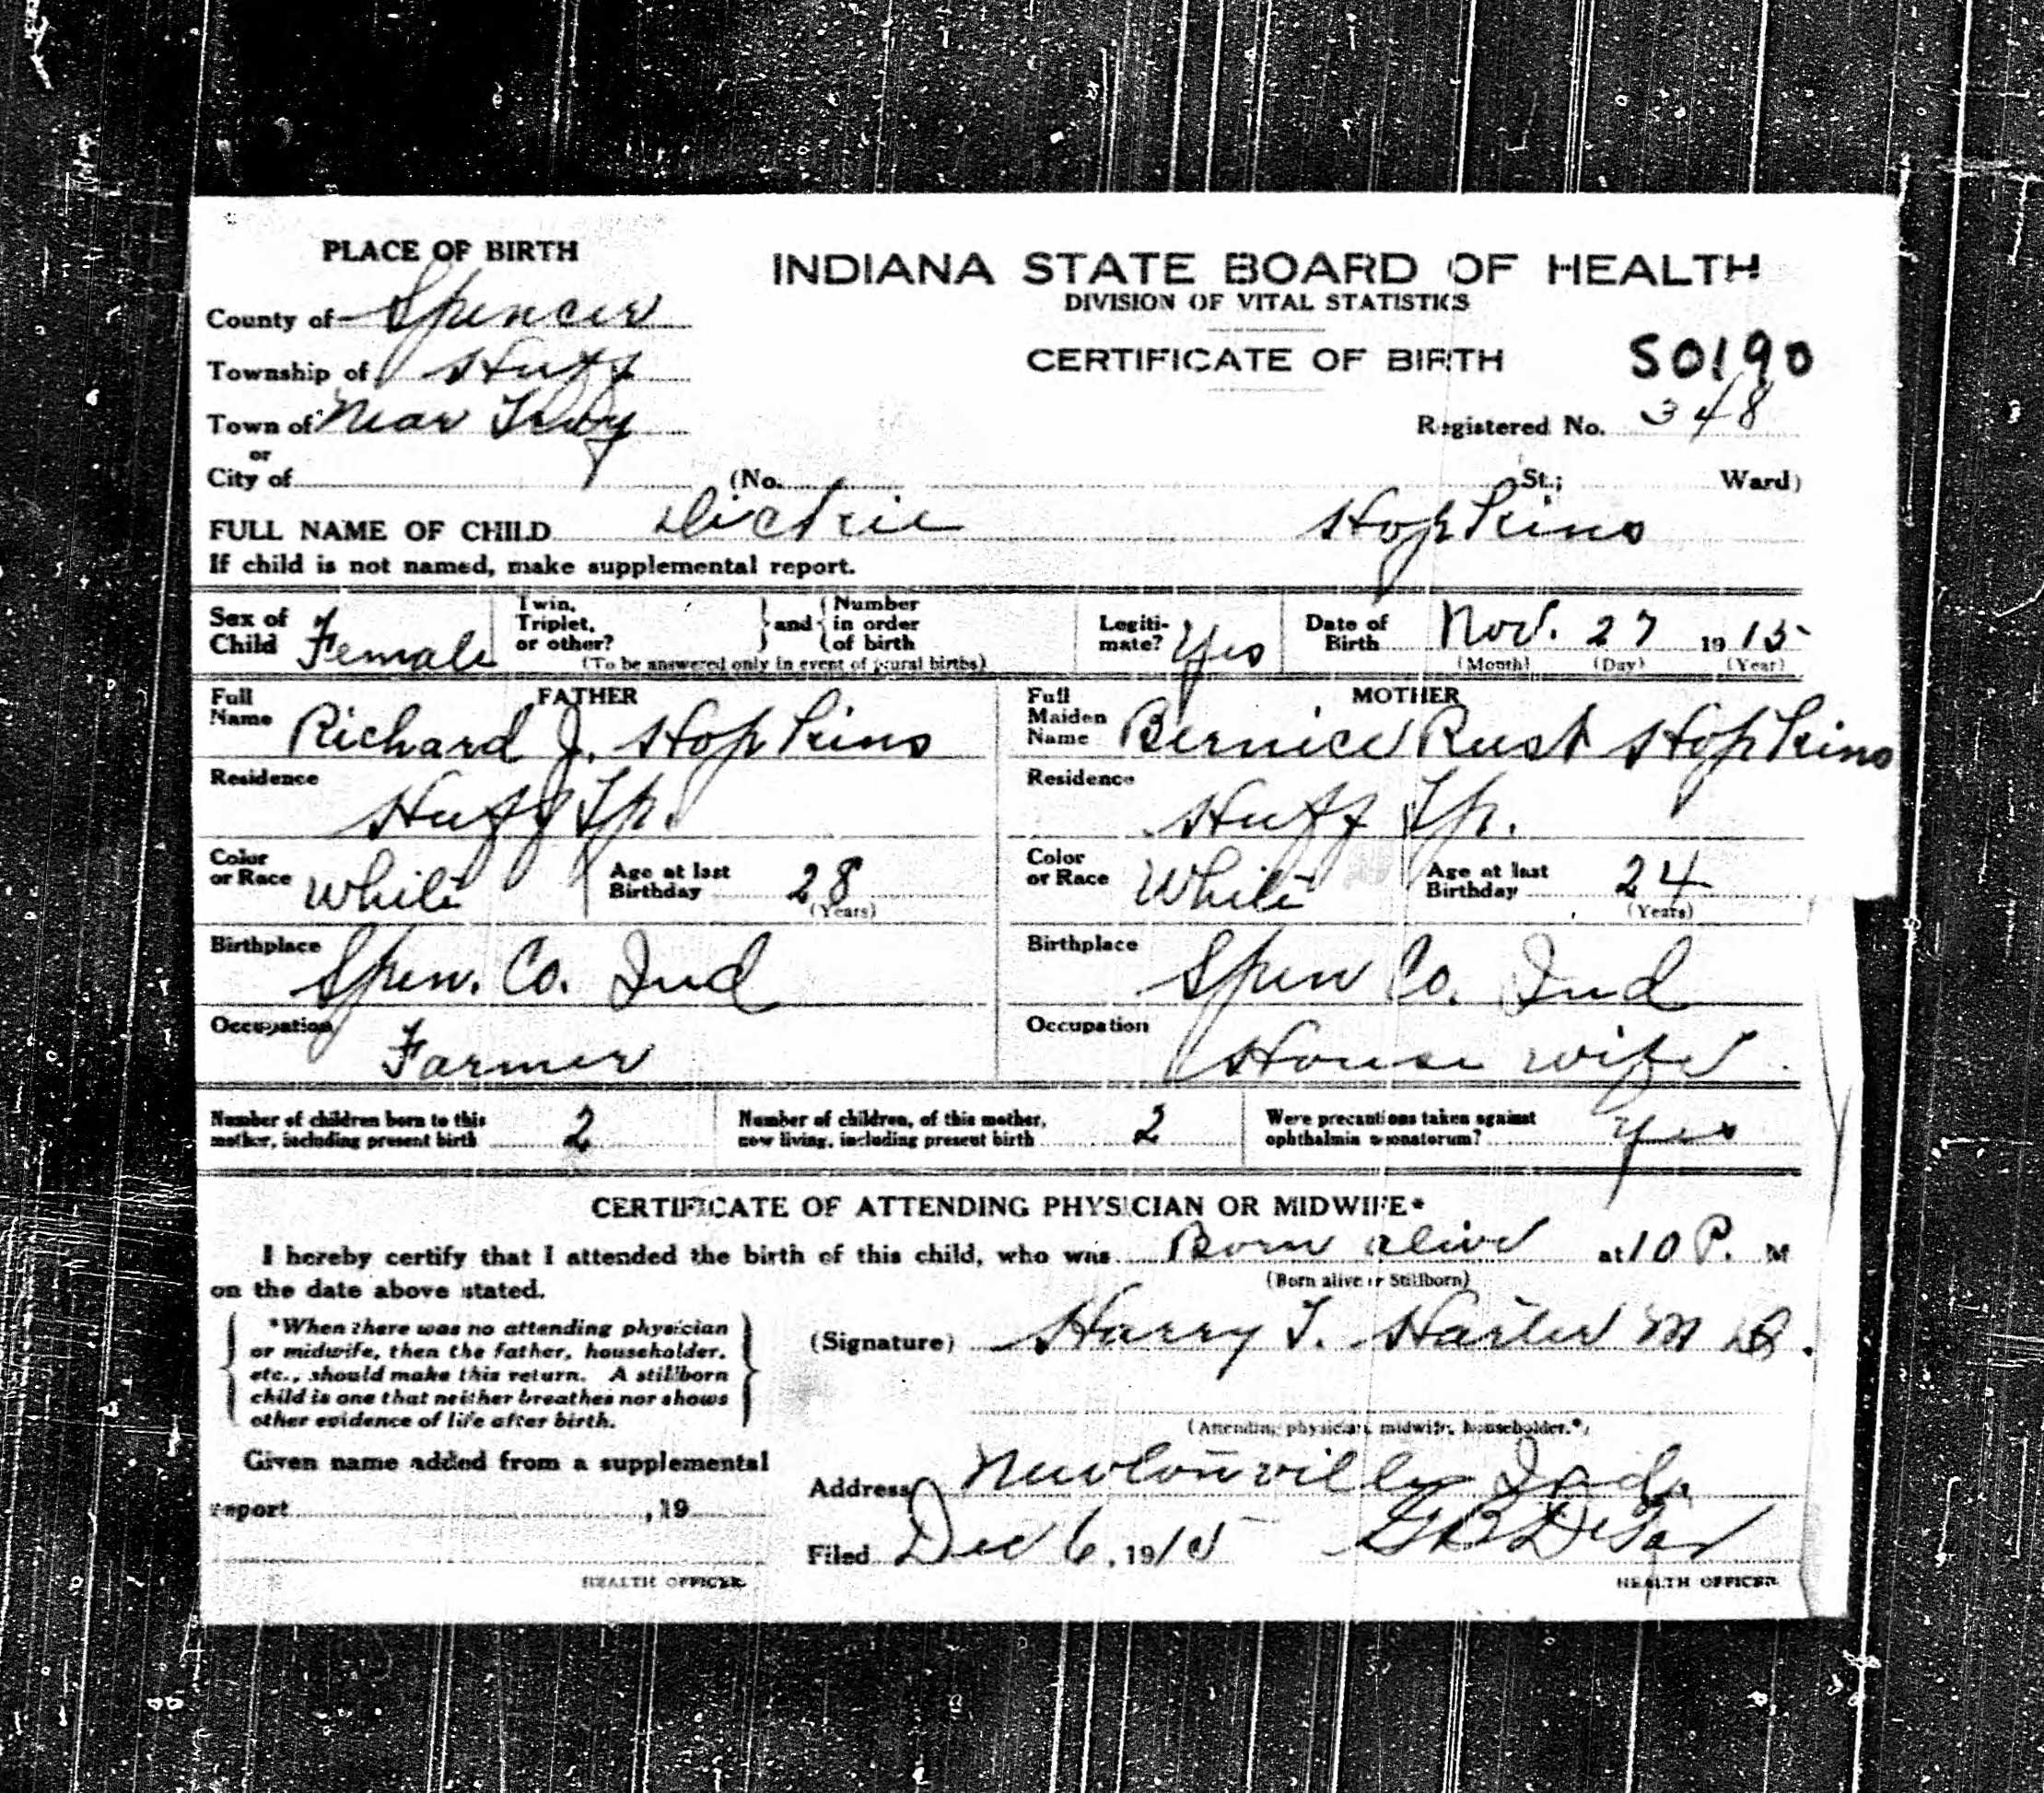 PLACE OF BIRTH
INDIANA STATE BOARD OF HEALTH
DIVISION OF VITAL STATISTICS
CERTIFICATE OF BIRTH
50190
County of Spencer
Township of Huff
Town of Near Troy
or
City of
Registered No. 348
(No. St.; Ward)
FULL NAME OF CHILD Dickie Hopkins
If child is not named, make supplemental report.
Sex of Child Female
Twin, Triplet, or other? and Number in order of birth
(To be answered only in event of plural births)
Legiti-mate? Yes
Date of Birth Nov. 27 1915
(Month) (Day) (Year)
FATHER
Full Name Richard J. Hopkins
Residence Huff Tp.
Color or Race White
Age at last Birthday 28
(Years)
Birthplace Spen. Co. Ind
Occupation Farmer
MOTHER
Full Maiden Name Bernice Rust Hopkins
Residence Huff Tp.
Color or Race White
Age at last Birthday 24
(Years)
Birthplace Spen Co. Ind
Occupation House wife
Number of children born to this mother, including present birth 2
Number of children, of this mother, now living, including present birth 2
Were precautions taken against ophthalmia neonatorum? Yes
CERTIFICATE OF ATTENDING PHYSICIAN OR MIDWIFE*
I hereby certify that I attended the birth of this child, who was Born alive at 10 P. M
(Born alive or Stillborn)
on the date above stated.
*When there was no attending physician
or midwife, then the father, householder,
etc., should make this return. A stillborn
child is one that neither breathes nor shows
other evidence of life after birth.
(Signature) Harry T. M D.
(Attending physician, midwife, householder.*)
Given name added from a supplemental
report , 19
HEALTH OFFICER
Address Newtonville Ind.
Filed Dec 6, 1915
HEALTH OFFICER